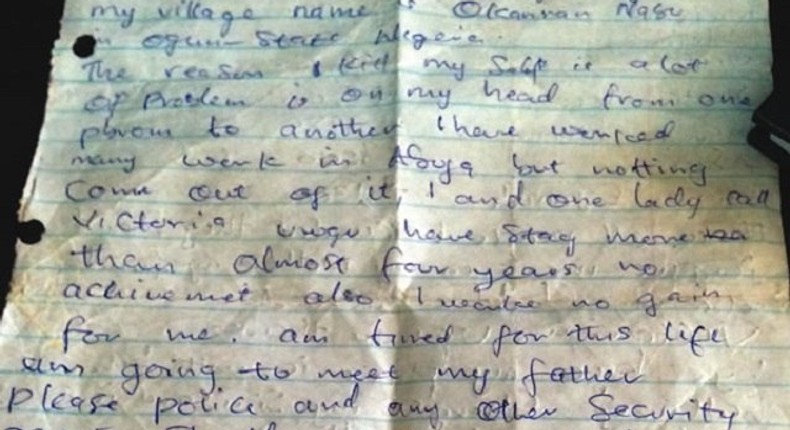 my village name is Okannan Nasu
in ogun State Nigeria.
The reason I kill my Self is a lot
of Problem is on my head from one
pbrom to another I have worked
many work in Abuja but notting
Come out of it, I and one lady call
Victoria have Stay more
than almost four years no
achivemet also I worke no gain
for me. am tired for this life
am going to meet my father
Please police and any other Security